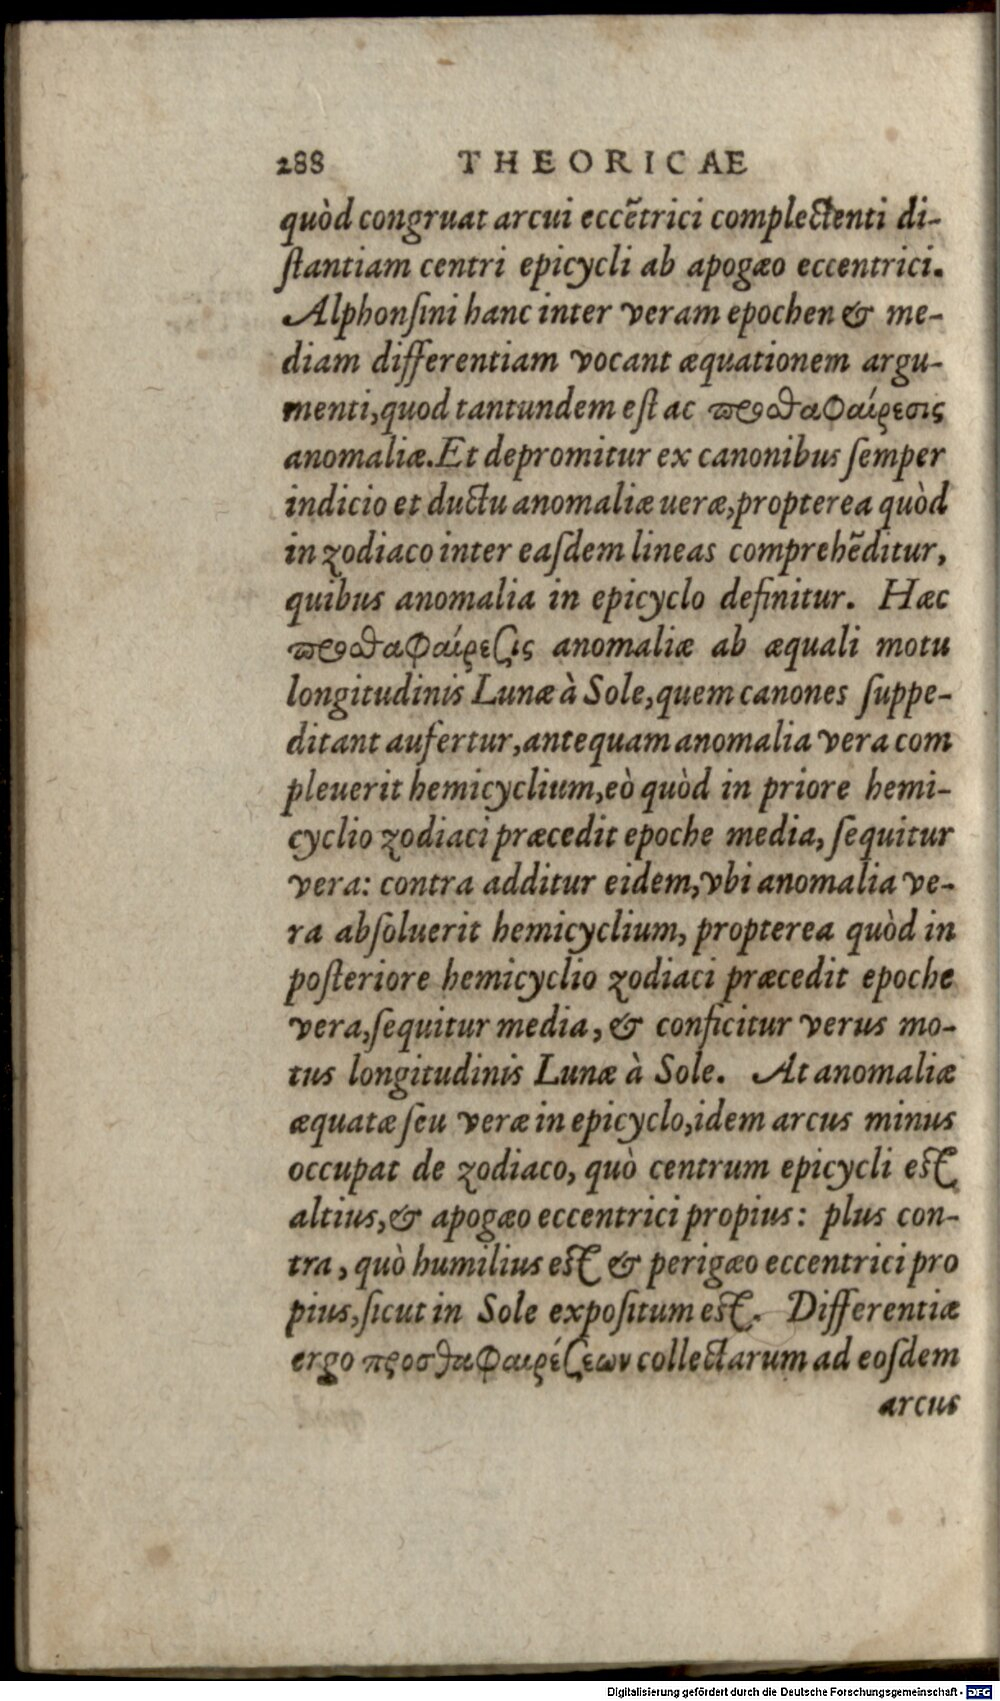 288 THEORICAE
quòd congruat arcui eccẽtrici complectenti di-
ſtantiam centri epicycli ab apogæo eccentrici.
Alphonſini hanc inter veram epochen & me-
diam differentiam vocant æquationem argu-
menti, quod tantundem eſt ac προσθαφαίρεσις
anomaliæ. Et depromitur ex canonibus ſemper
indicio et ductu anomaliæ ueræ, propterea quòd
in zodiaco inter eaſdem lineas comprehẽditur,
quibus anomalia in epicyclo definitur. Hæc
προσθαφαίρεσις anomaliæ ab æquali motu
longitudinis Lunæ à Sole, quem canones ſuppe-
ditant aufertur, antequam anomalia vera com
pleuerit hemicyclium, eò quòd in priore hemi-
cyclio zodiaci præcedit epoche media, ſequitur
vera: contra additur eidem, vbi anomalia ve-
ra abſoluerit hemicyclium, propterea quòd in
poſteriore hemicyclio zodiaci præcedit epoche
vera, ſequitur media, & conficitur verus mo-
tus longitudinis Lunæ à Sole. At anomaliæ
æquatæ ſeu veræ in epicyclo, idem arcus minus
occupat de zodiaco, quò centrum epicycli eſt
altius, & apogæo eccentrici propius: plus con-
tra, quò humilius eſt & perigæo eccentrici pro
pius, ſicut in Sole expoſitum eſt. Differentiæ
ergo προσθαφαιρέσεων collectarum ad eoſdem
arcus
Digitalisierung gefördert durch die Deutsche Forschungsgemeinschaft - DFG